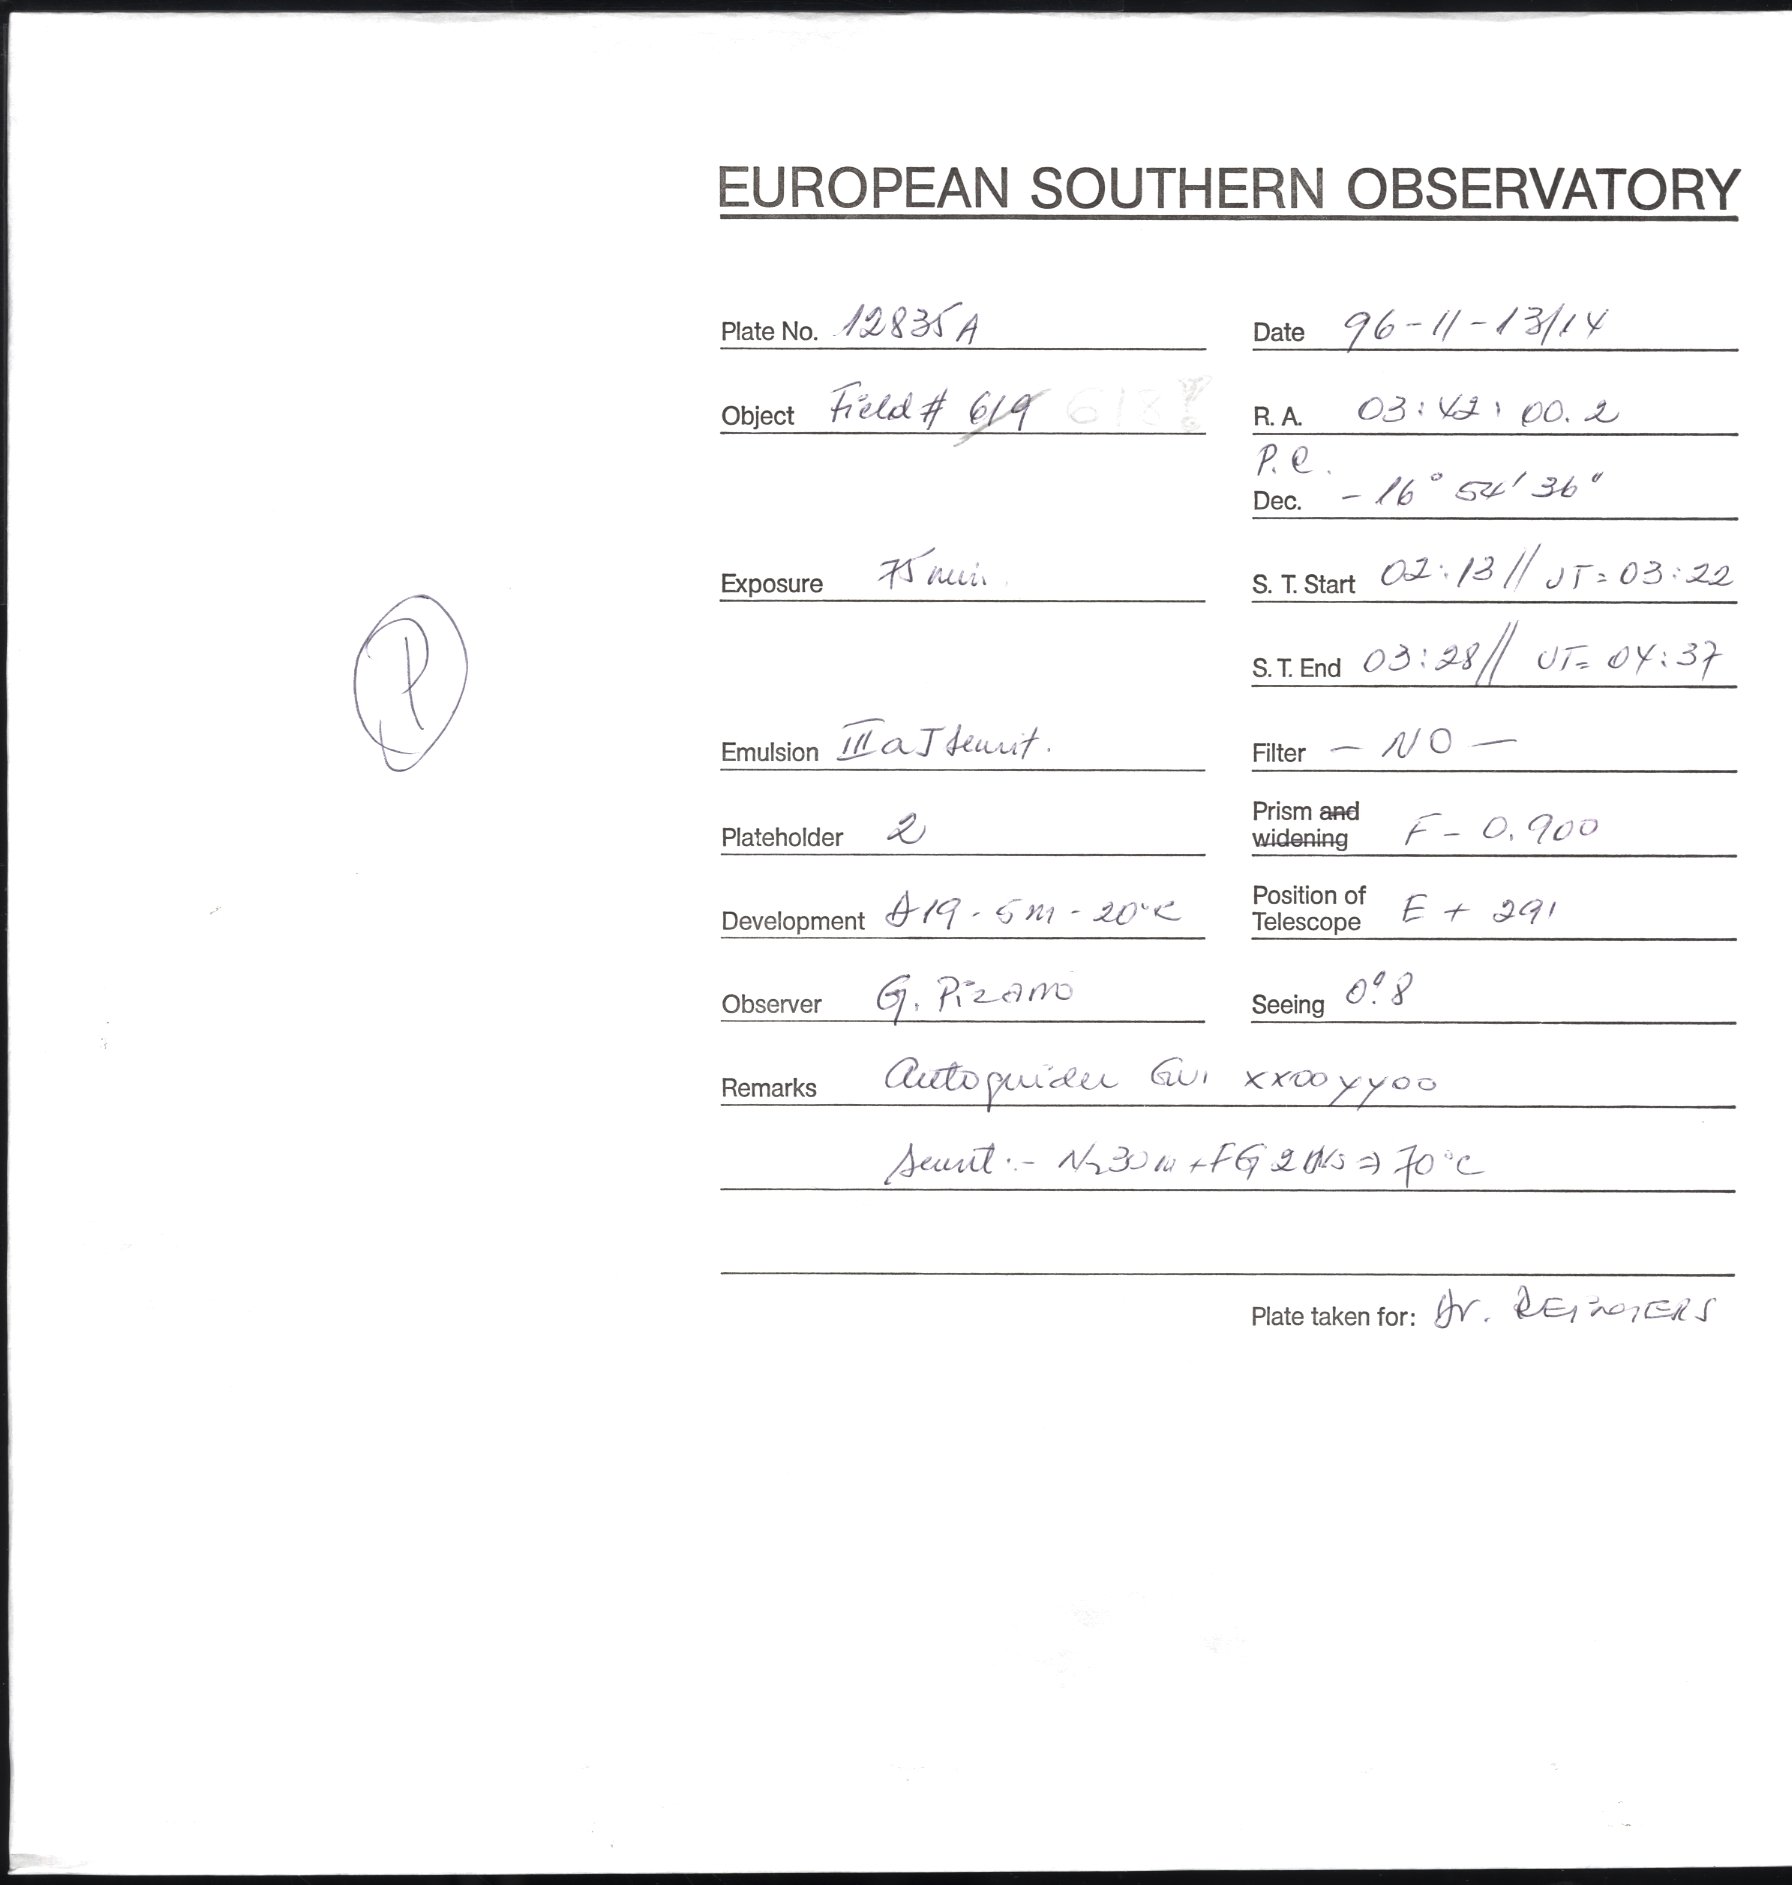 EUROPEAN SOUTHERN OBSERVATORY
Plate No. 12835A
Date 96-11-13/14
Object Field # 619 618!
R. A. 03:42:00.2
P.C.
Dec. -16° 54' 36"
Exposure 75 min.
S. T. Start 02:13 // UT= 03:22
S. T. End 03:28 // UT= 04:37
Emulsion IIIaJ sensit.
Filter - NO -
Plateholder 2
Prism and widening F - 0.900
Development D19 - 5m - 20°C
Position of Telescope E + 291
Observer G. Pizarro
Seeing 0".8
Remarks Autoguider xx00yy00
Sensit.- N2 30m + FG 2 ⇒ 70°C
Plate taken for: Dr. REIMERS
P